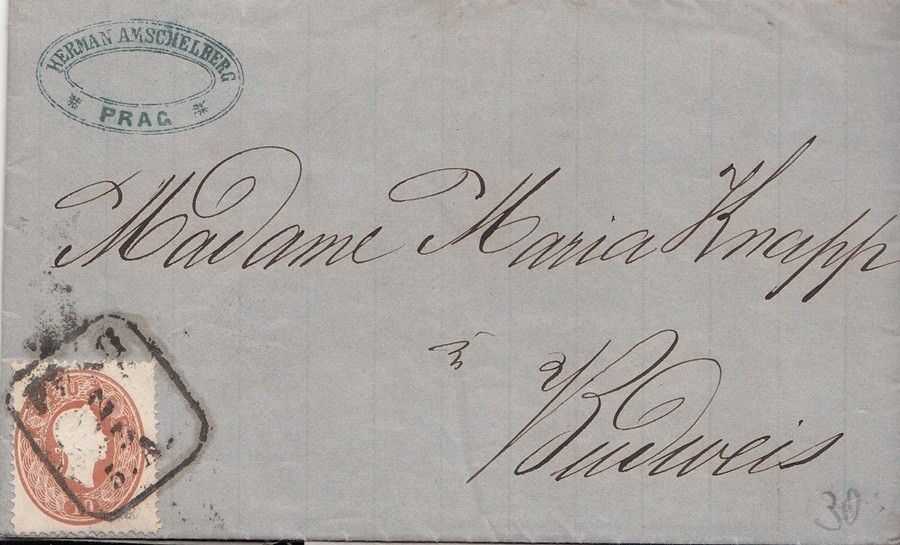 HERMAN AMSCHELBERG
PRAG
Madame Maria Knapp
à
Budweis
10
30